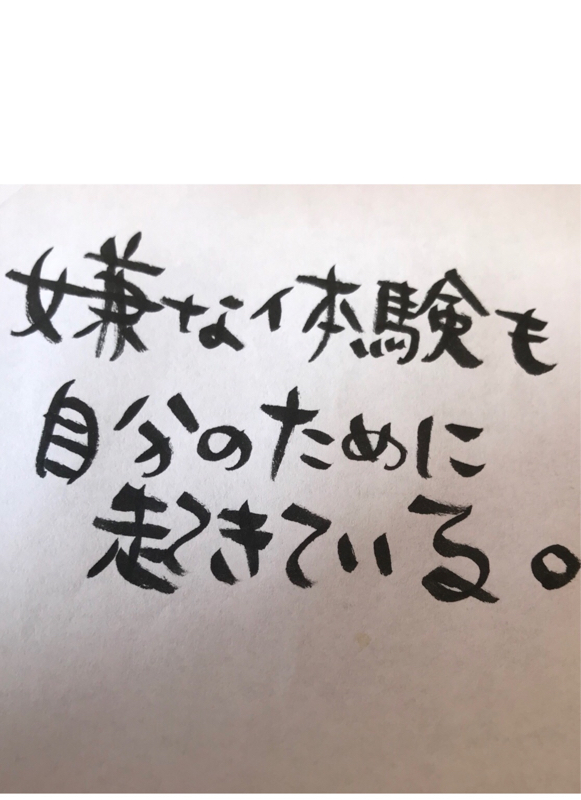 嫌な体験も
自分のために
起きている。